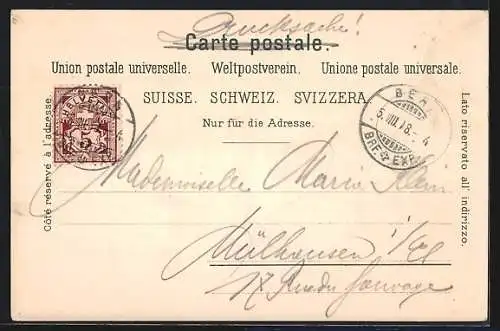 Drucksache!
Carte postale.
Union postale universelle. Weltpostverein. Unione postale universale.
SUISSE. SCHWEIZ. SVIZZERA.
Nur für die Adresse.
Côté réservé à l'adresse.
Lato riservato all' indirizzo.
HELVETIA
5
BERN
BRF. EXP.
Mademoiselle Marie Klein
Mülhausen i/Els
17 Rue du Sauvage